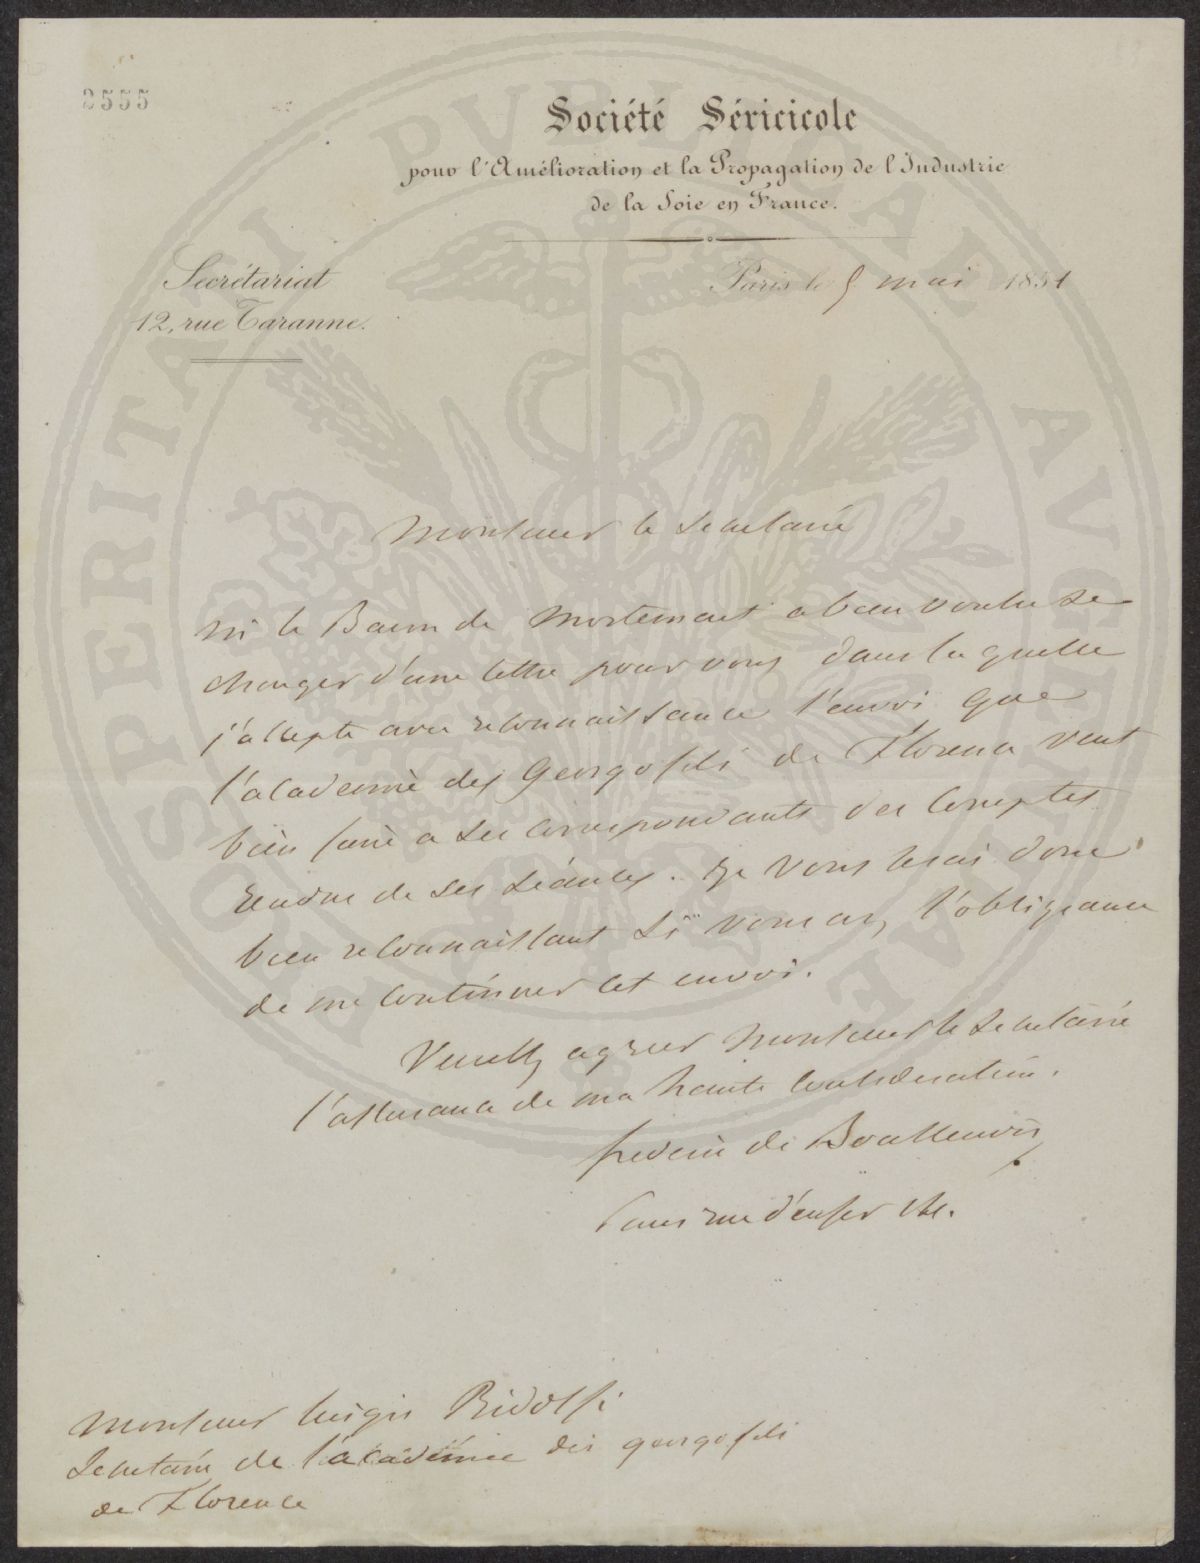 2555
Société Séricicole
pour l'Amélioration et la Propagation de l'Industrie
de la Soie en France.
Secrétariat
12, rue Taranne.
Paris le 5 mai 1851
PROSPERITATI PVBLICAE AVGENDAE
Monsieur le Secretaire
Mr le Baron de Mortemart a bien voulu se
charger d'une lettre pour vous dans la quelle
j'accepte avec reconnaissance l'envoi que
l'academie des Georgofili de Florence veut
bien faire a ses correspondants des Comptes
rendus de ses séances. Je vous serai donc
bien reconnaissant si vous avez l'obligeance
de me continuer cet envoi.
Veuillez agreer Monsieur le Secretaire
l'assurance de ma haute consideration.
frederic de Boullenois
Paris rue d'enfer
Monsieur Luigi Ridolfi
Secretaire de l'academie des georgofili
de Florence